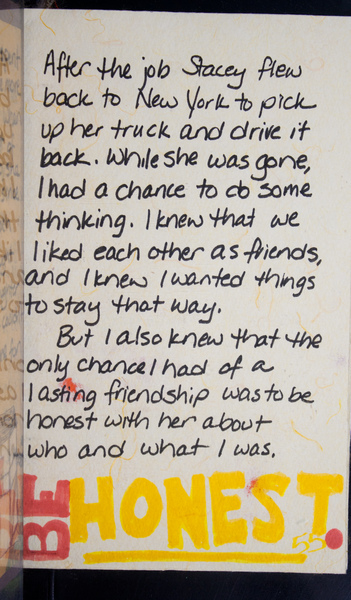 After the job Stacey flew
back to New York to pick
up her truck and drive it
back. While she was gone,
I had a chance to do some
thinking. I knew that we
liked each other as friends,
and I knew I wanted things
to stay that way.
But I also knew that the
only chance I had of a
lasting friendship was to be
honest with her about
who and what I was.
BE HONEST.
55